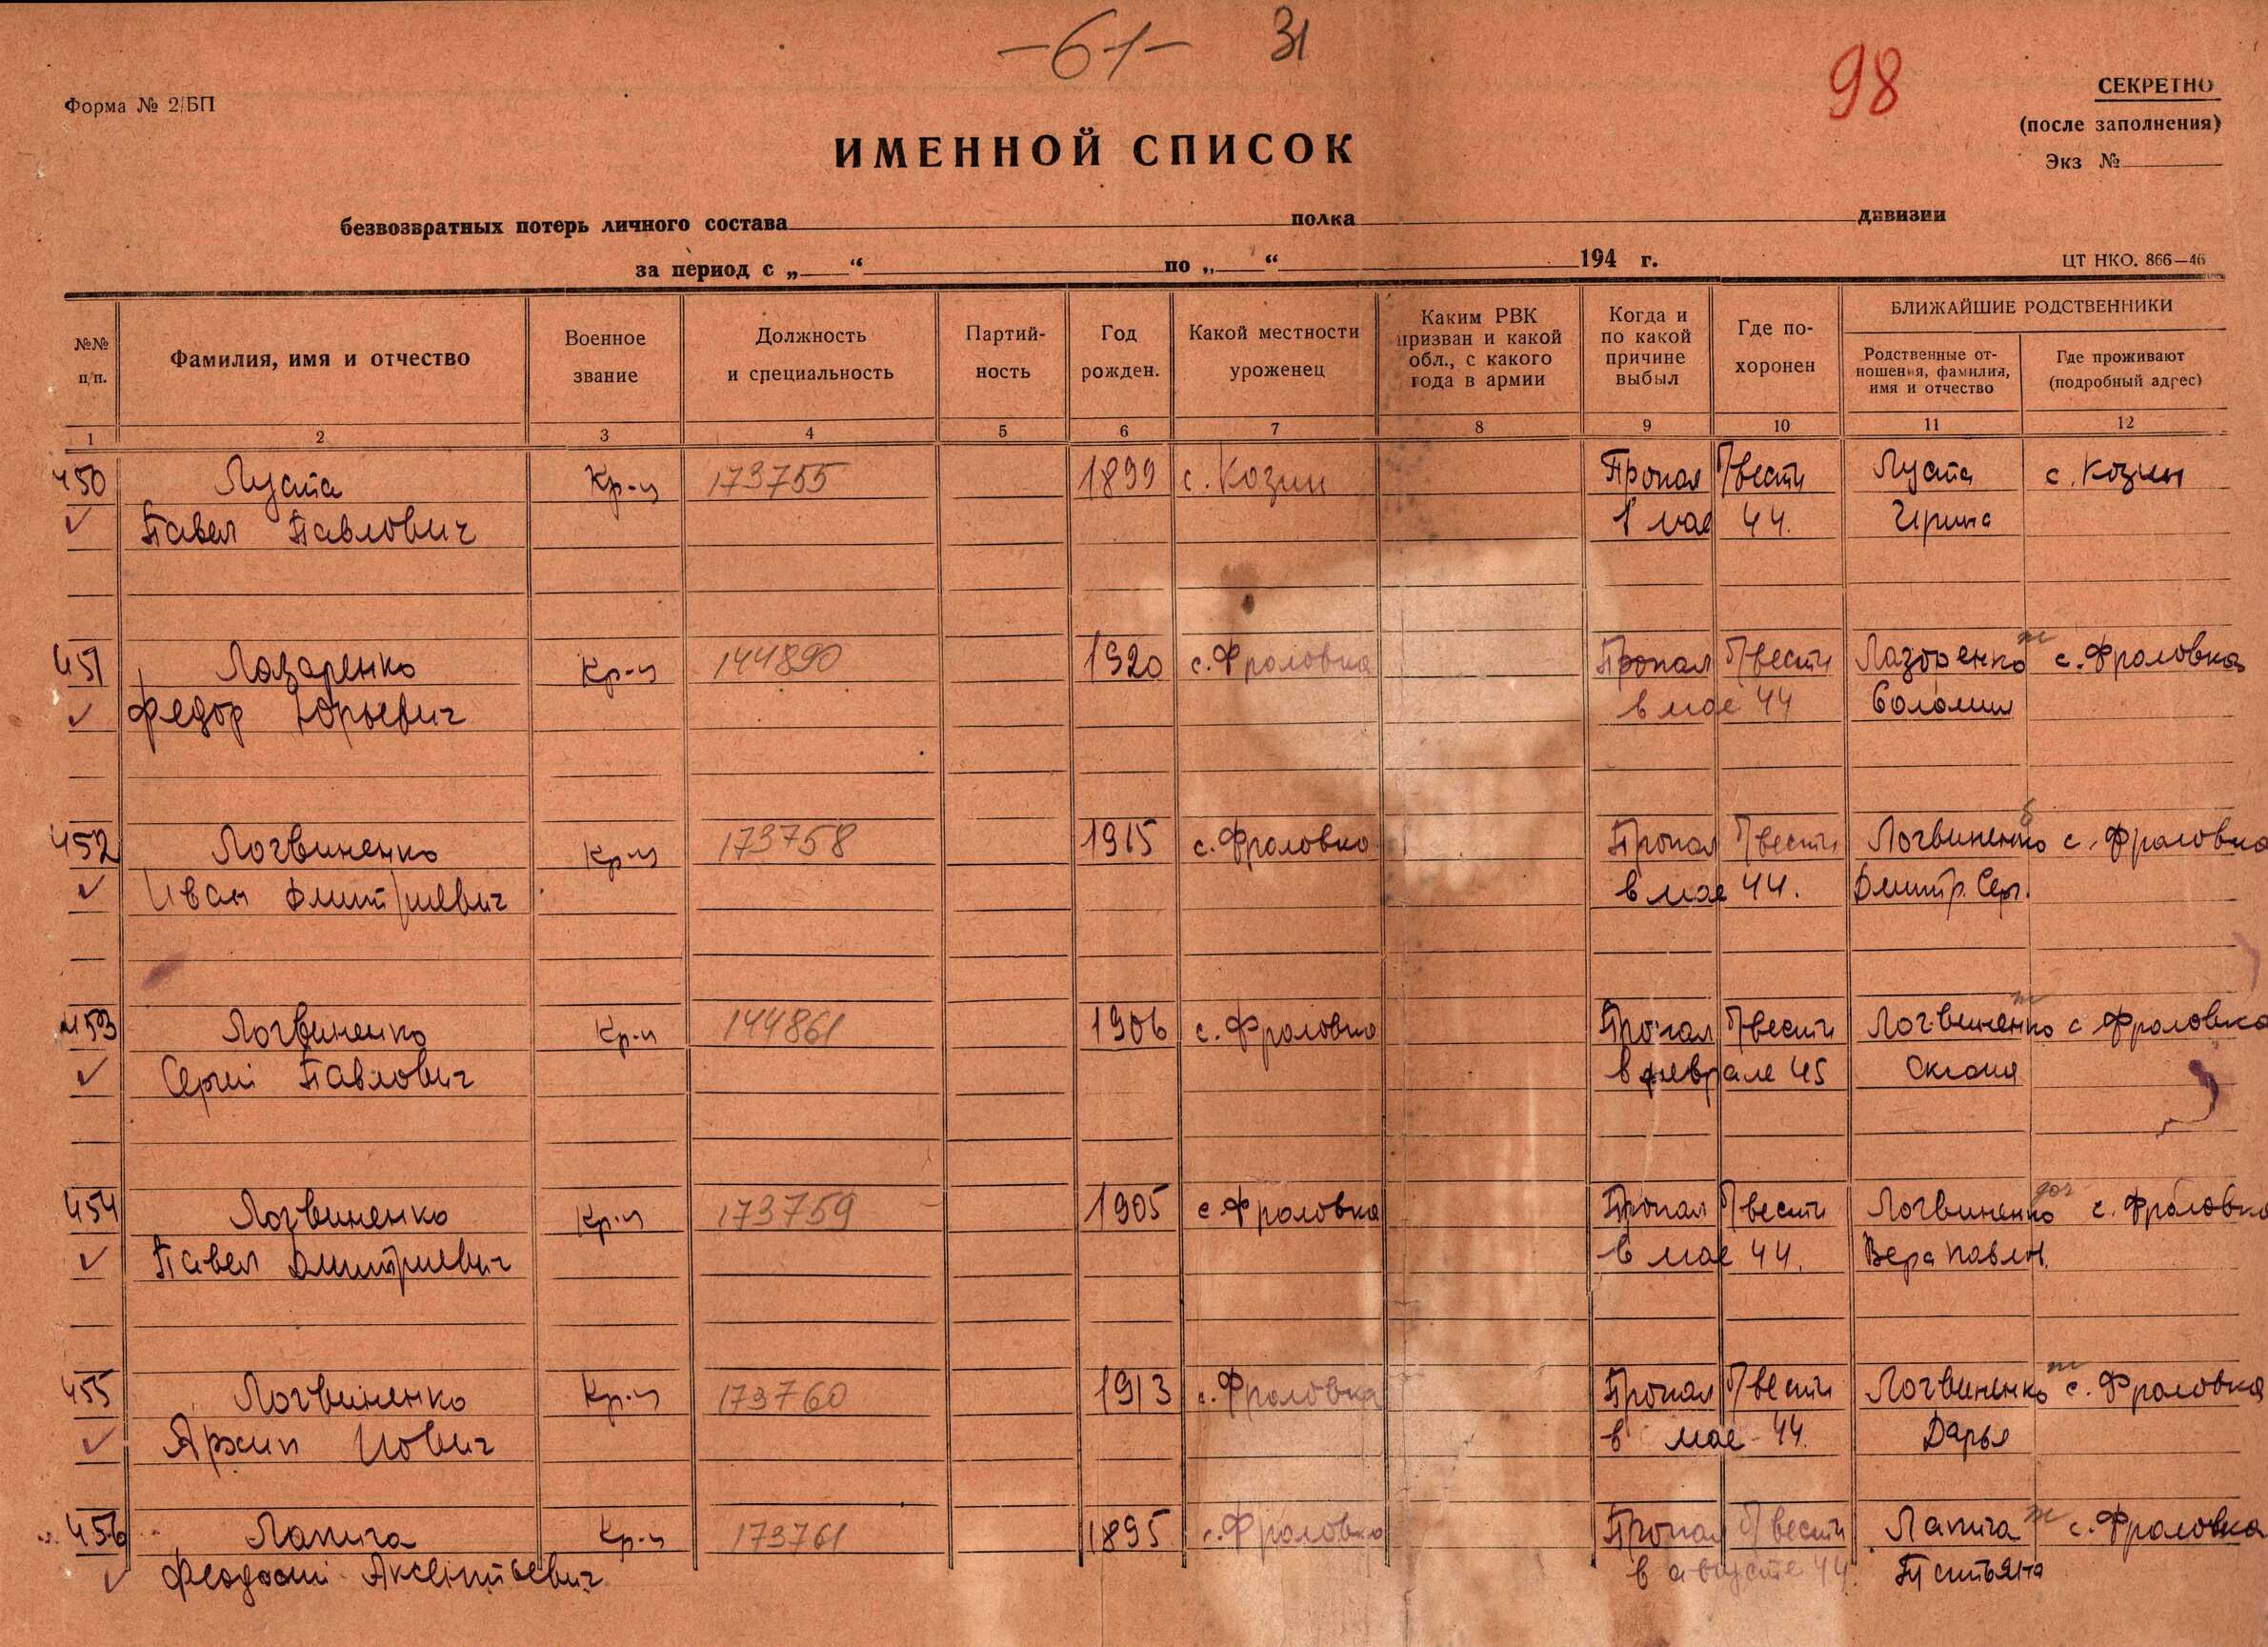 -61- 31
98
Форма № 2/БП
СЕКРЕТНО
(после заполнения)
Экз №
ИМЕННОЙ СПИСОК
безвозвратных потерь личного состава полка дивизии
за период с „ “ по „ “ 194 г.
ЦТ НКО. 866—46
№№ п/п.
Фамилия, имя и отчество
Военное звание
Должность и специальность
Партий-ность
Год рожден.
Какой местности уроженец
Каким РВК призван и какой обл., с какого года в армии
Когда и по какой причине выбыл
Где по-хоронен
БЛИЖАЙШИЕ РОДСТВЕННИКИ
Родственные от-ношения, фамилия, имя и отчество
Где проживают (подробный адрес)
1 2 3 4 5 6 7 8 9 10 11 12
450 Лузата Кр-ц 173755 1899 с. Козин Пропал б/вести Лузата с. Козин
Павел Павлович в мае 44. Ирина
451 Лазаренко Кр-ц 144890 1920 с. Фроловка Пропал б/вести Лазоренко ж с. Фроловка
Федор Юрьевич в мае 44 Соломия
452 Логвиненко Кр-ц 173758 1915 с. Фроловка Пропал б/вести Логвиненко с. Фроловка
Иван Дмитриевич в мае 44. Дмитр. Серг.
453 Логвиненко Кр-ц 144861 1906 с. Фроловка Пропал б/вести Логвиненко ж с Фроловка
Сергей Павлович в феврале 45
454 Логвиненко Кр-ц 173759 1905 с. Фроловка Пропал б/вести Логвиненко доч с. Фроловка
Павел Дмитриевич в мае 44. Вера Павлов.
455 Логвиненко Кр-ц 173760 1913 с. Фроловка Пропал б/вести Логвиненко ж с. Фроловка
Архип Иович в мае 44. Дарья
456 Лапига Кр-ц 173761 1895 с. Фроловка Пропал б/вести Лапига ж с. Фроловка
Феодосий Аксентьевич в августе 44.